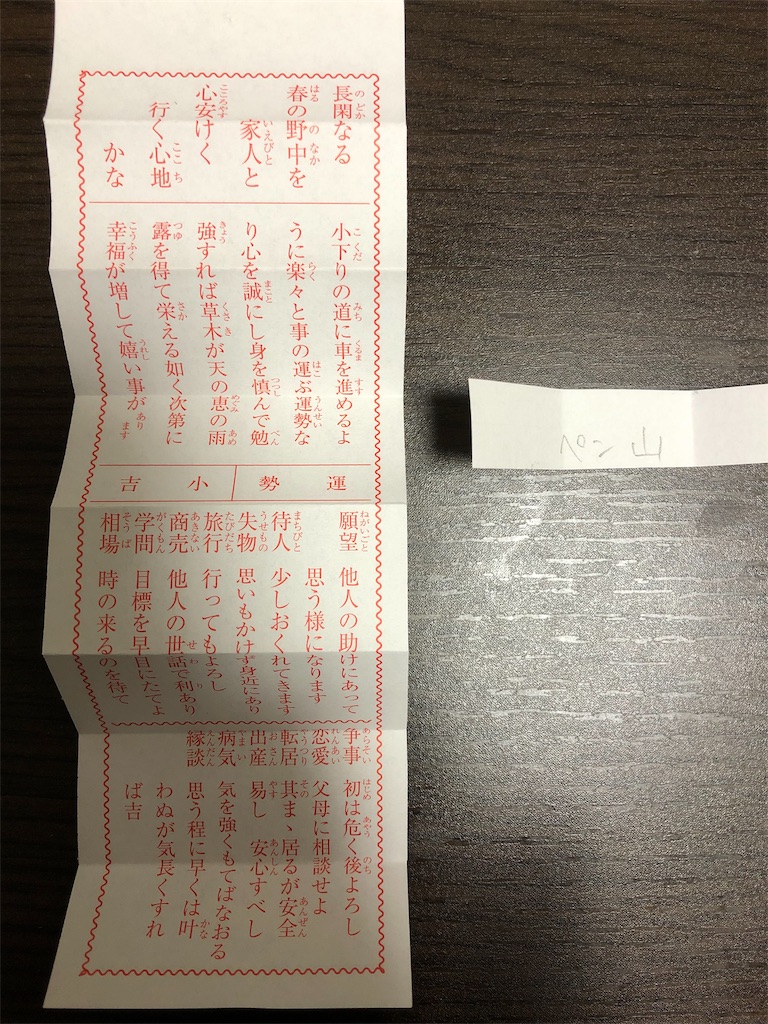 長閑なる
春の野中を
家人と
心安けく
行く心地
かな
小下りの道に車を進めるよ
うに楽々と事の運ぶ運勢な
り心を誠にし身を慎んで勉
強すれば草木が天の恵の雨
露を得て栄える如く次第に
幸福が増して嬉い事があります
運勢 小吉
願望 他人の助けにあって
思う様になります
待人 少しおくれてきます
失物 思いもかけず身近にあり
旅行 行ってもよろし
商売 他人の世話で利あり
学問 目標を早目にたてよ
相場 時の来るのを待て
争事 初は危く後よろし
恋愛 父母に相談せよ
転居 其まゝ居るが安全
出産 易し 安心すべし
病気 気を強くもてばなおる
縁談 思う程に早くは叶
わぬが気長くすれ
ば吉